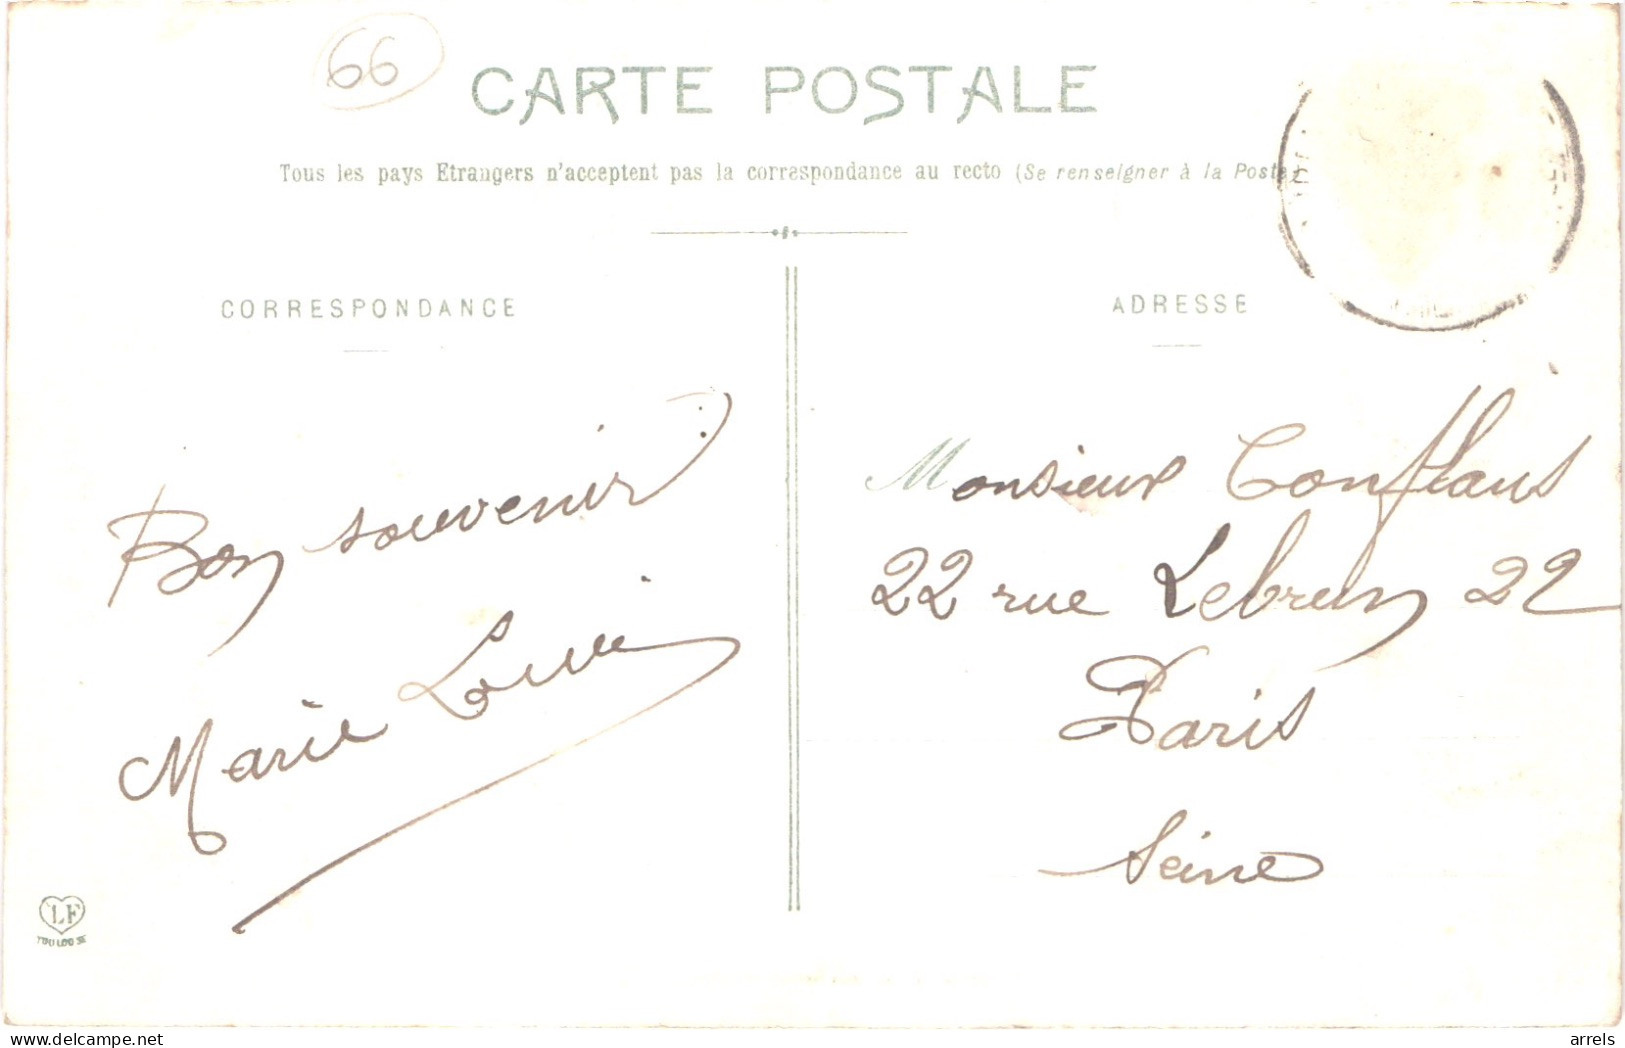 66
CARTE POSTALE
Tous les pays Etrangers n'acceptent pas la correspondance au recto (Se renseigner à la Poste)
CORRESPONDANCE
ADRESSE
Bon souvenir
Marie Louise
Monsieur Conflans
22 rue Lebrun 22
Paris
Seine
LF
TOULOUSE
delcampe.net
arrels